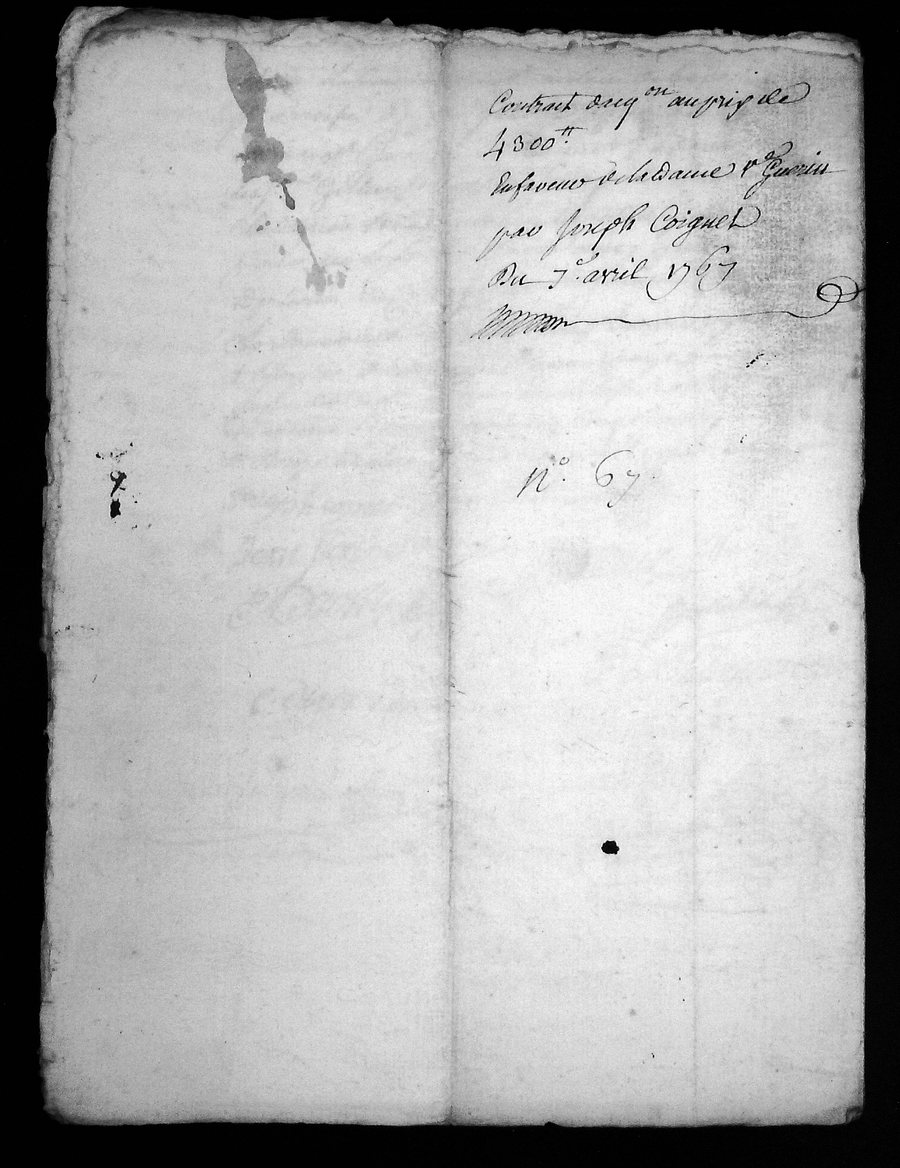 Contract dacq.on au prix de
4300 tt
En faveur de la Dame ve Guerin
par Joseph Coignet
Du 7e avril 1767
n° 67